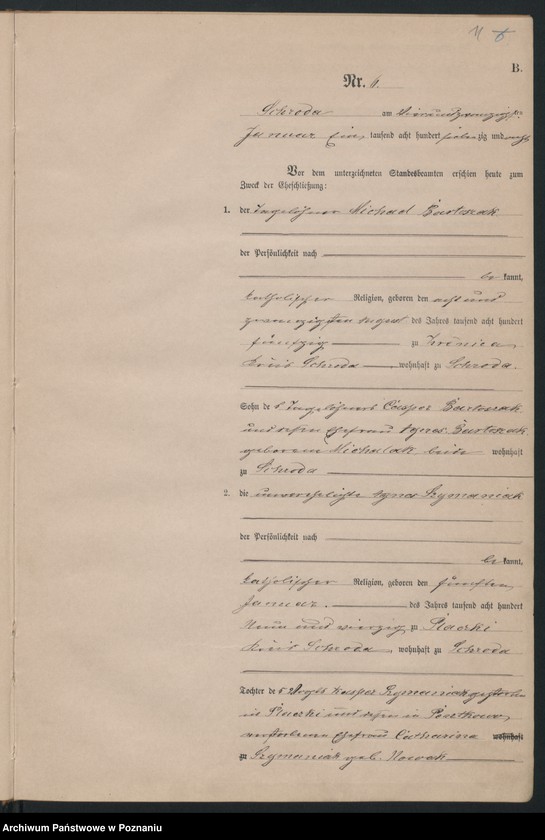 11 6
B.
Nr. 6.
Schroda am vierundzwanzigsten
Januar Ein tausend acht hundert siebenzig und acht
Vor dem unterzeichneten Standesbeamten erschien heute zum
Zweck der Eheschließung:
1. der Tagelöhner Michael Bartozak
der Persönlichkeit nach
be kannt,
katholischer Religion, geboren den acht und
zwanzigsten August des Jahres tausend acht hundert
fünfzig zu
Kreis Schroda, wohnhaft zu Schroda.
Sohn des Tagelöhners Casper Bartozak
und dessen Ehefrau Agnes Bartozak
geborene Michalak beide wohnhaft
zu Schroda
2. die unverehelichte Agnes Szymaniak
der Persönlichkeit nach
be kannt,
katholischer Religion, geboren den fünften
Januar des Jahres tausend acht hundert
Neun und vierzig zu Placzki
Kreis Schroda, wohnhaft zu Schroda
Tochter des Vogts Kasper Szymaniak gestorben
in Placzki und dessen in Piontkowo
verstorbenen Ehefrau Catharina wohnhaft
zu Szymaniak geb. Nowak
Archiwum Państwowe w Poznaniu